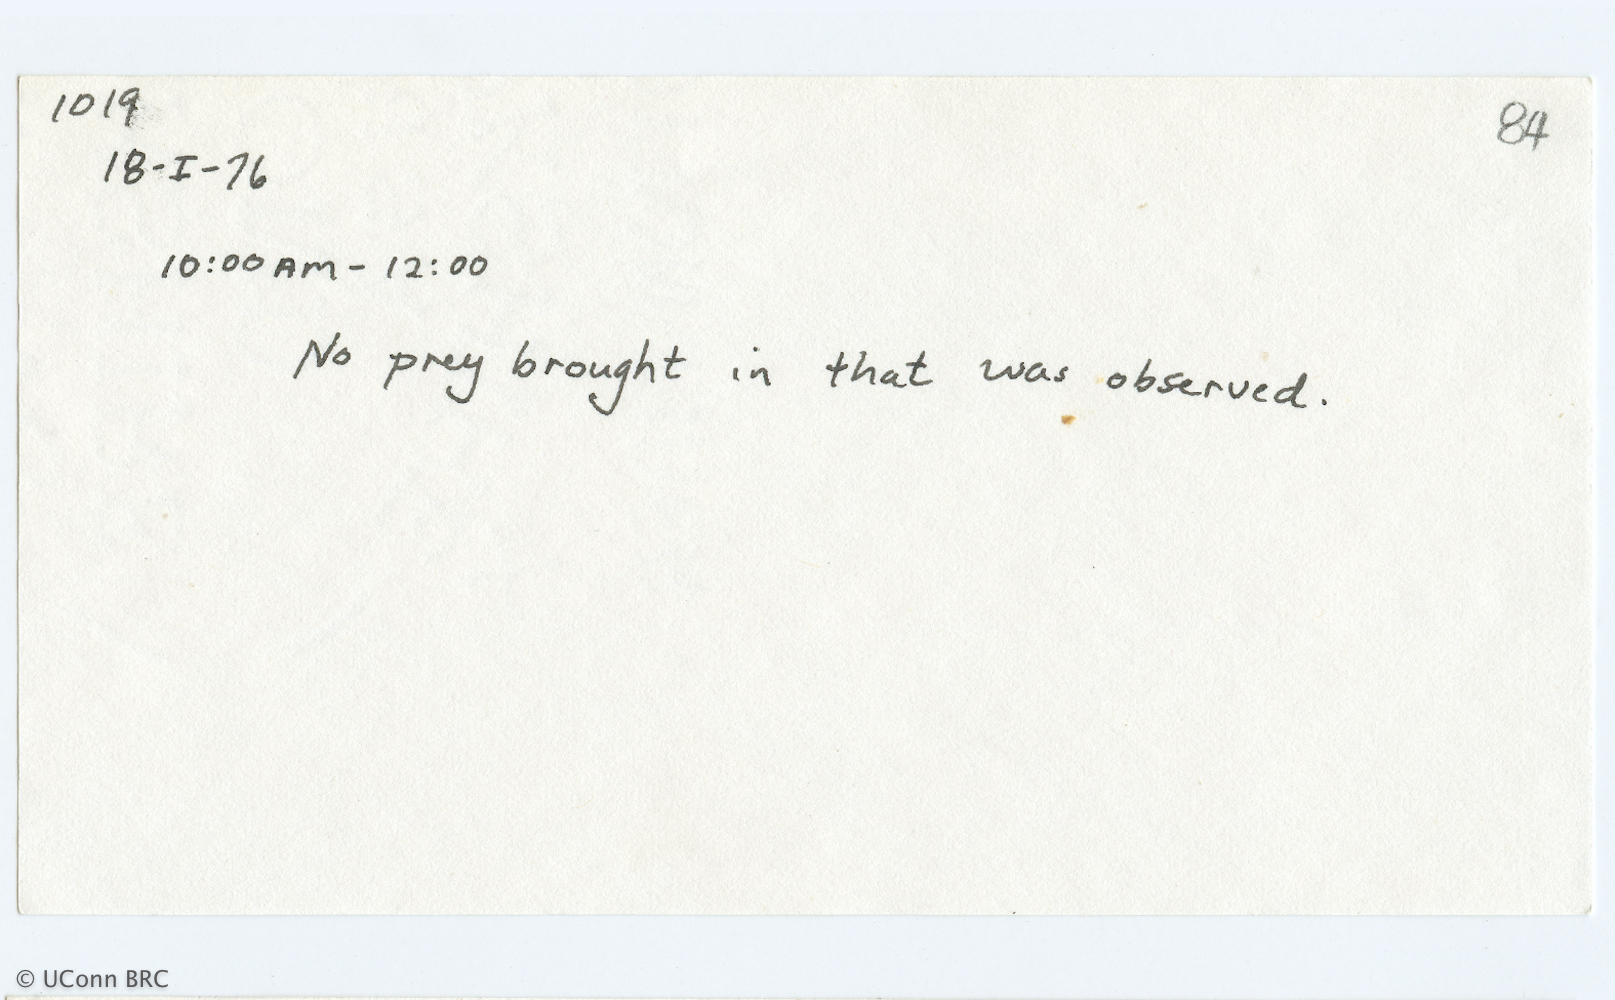 1019
84
18-I-76
10:00 AM - 12:00
No prey brought in that was observed.
© UConn BRC